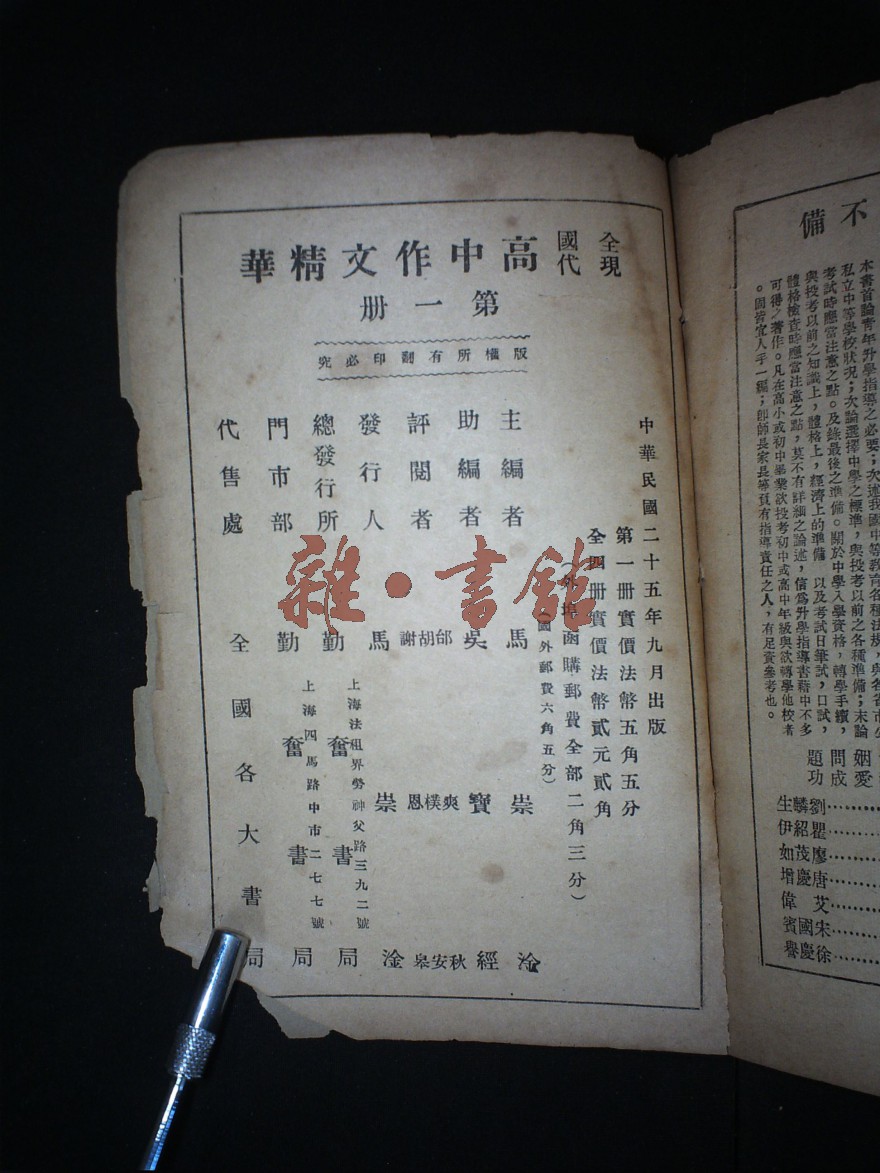 全國現代高中作文精華
第一冊
版權所有翻印必究
中華民國二十五年九月出版
第一册實價法幣五角五分
全四册實價法幣貳元貳角
(外埠函購郵費全部二角三分)
國外郵費六角五分)
主編者 馬崇淦
助編者 吳寶經
評閱者 邰爽秋 胡樸安 謝恩皋
發行人 馬崇淦
總發行所 勤奮書局
上海法租界勞神父路三九二號
門市部 勤奮書局
上海四馬路中市二七七號
代售處 全國各大書局
雜·書館
不備
本書首論青年升學指導之必要;次述我國中等教育各種法規,與各省市公
私立中等學校狀況;次論選擇中學之標準,與投考以前之各種準備;末論
考試時應當注意之點。及錄最後之準備。關於中學入學資格,轉學手續,
與投考以前之知識上,體格上,經濟上的準備 以及考試日筆試,口試,
體格檢查時應當注意之點,莫不有詳細之論述,信爲升學指導書藉中不多
可得之著作。凡在高小或初中畢業欲投考初中或高中年級與欲轉學他校者
。固皆宜人手一編;即師長家長等負有指導責任之人,有足資參考也。
愛成功
姻問題
劉麟生
瞿紹伊
廖茂如
唐慶增
艾偉
宋國賓
徐慶譽